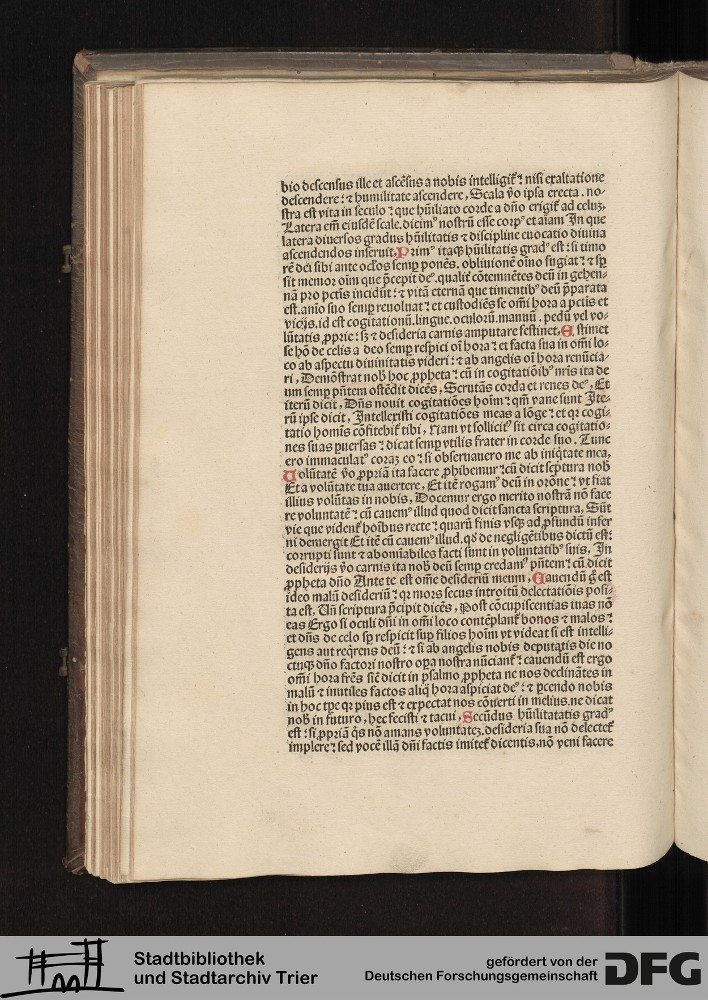 bio descensus ille et ascēsus a nobis intelligit᷑ : nisi exaltatione
descendere : ⁊ humilitate ascendere, Scala v̄o ipsa erecta . no-
stra est vita in seculo : que hūiliato corde a dño erigit᷑ ad celuꝫ,
Latera em̄ eiusdē scale. dicimꝰ nostrū esse corpꝰ et aīam In que
latera diuersos gradus hūilitatis ⁊ discipline euocatio diuina
ascendendos inseruit, Primꝰ itaqꝫ hūilitatis gradꝰ est : si timo
rē dei sibi ante oc̄los semꝑ ponēs. obliuionē oīno fugiat : ⁊ sꝑ
sit memor oīm que p̄cepit deꝰ. qualit᷑ cōtemnētes deū in gehen-
nā pro pctīs incidūt : ⁊ vitā eternā que timentibꝰ deū p̄parata
est. aīmo suo semꝑ reuoluat : et custodiēs se om̄i hora a pctīs et
vicijs. id est cogitationū. lingue. oculorū. manuū . pedū vel vo-
lūtatis ꝓprie : sꝫ ⁊ desideria carnis amputare festinet, Estimet
se hō de celis a deo semꝑ respici oī hora : et facta sua in om̄i lo-
co ab aspectu diuinitatis videri : ⁊ ab angelis oī hora renūcia-
ri, Demōstrat nob̄ hoc ꝓpheta : cū in cogitatiōibꝰ nr̄is ita de
um semꝑ pn̄tem ostēdit dicēs, Scrutās corda et renes deꝰ, Et
iterū dicit, Dn̄s nouit cogitatiōes hoīm : qm̄ vane sunt Ite-
rū ipse dicit, Intellexisti cogitatiōes meas a lōge : et qꝛ cogi-
tatio homīs cōfitebit᷑ tibi, Nam vt sollicitꝰ sit circa cogitatio-
nes suas ꝑuersas : dicat semꝑ vtilis frater in corde suo . Tunc
ero immaculatꝰ coraꝫ eo : si obseruauero me ab iniq̄tate mea,
Volūtatē v̄o ꝓpriā ita facere ꝓhibemur : cū dicit scptura nob̄
Et a volūtate tua auertere, Et itē rogamꝰ deū in orōne : vt fiat
illius volūtas in nobis, Docemur ergo merito nostrā nō face
re voluntatē : cū cauemꝰ illud quod dicit sancta scriptura, Sūt
vie que vident᷑ hoībus recte : quarū finis vsqꝫ ad ꝓfundū infer
ni demergit Et itē cū cauemꝰ illud. qđ de negligētibus dictū est :
corrupti sunt ⁊ abomīabiles facti sunt in voluntatibꝰ suis, In
desiderijs v̄o carnis ita nob̄ deū semꝑ credamꝰ pn̄tem : cū dicit
ꝓpheta dño Ante te est om̄e desideriū meum, Cauendū g̊ est
ideo malū desideriū : qꝛ mors secus introitū delectatiōis posi-
ta est, Uñ scriptura p̄cipit dicēs, Post cōcupiscentias tuas nō
eas Ergo si oculi dn̄i in om̄i loco contēplant᷑ bonos ⁊ malos :
et dn̄s de celo sꝑ respicit suꝑ filios hoīm vt videat si est intelli-
gens aut req̄rens deū : ⁊ si ab angelis nobis deputatis die no
ctuqꝫ dño factori nostro oꝑa nostra nūciant᷑ : cauendū est ergo
om̄i hora fr̄es sic̄ dicit in psalmo ꝓpheta ne nos declinātes in
malū ⁊ inutiles factos aliq̄ hora aspiciat deꝰ : ⁊ ꝑcendo nobis
in hoc tp̄e qꝛ pius est ⁊ expectat nos cōuerti in melius. ne dicat
nob̄ in futuro, hec fecisti ⁊ tacui, Secūdus hūilitatatis gradꝰ
est : si ꝓpriā q̄s nō amans voluntateꝫ. desideria sua nō delectet᷑
implere : sed vocē illā dn̄i factis imitet᷑ dicentis, nō veni facere
Stadtbibliothek
und Stadtarchiv Trier
gefördert von der
Deutschen Forschungsgemeinschaft
DFG